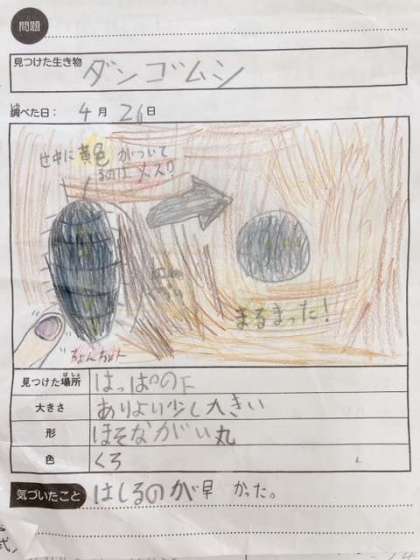 問題
見つけた生き物
ダンゴムシ
調べた日： 4 月 26 日
せ中に黄色がついて
るのはメス!!
まるまった!
ちょんちょん
見つけた場所 はっぱの下
大きさ ありより少し大きい
形 ほそながい丸
色 くろ
気づいたこと はしるのが早かった。